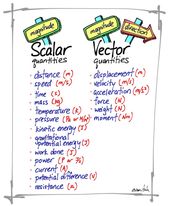 magnitude
Scalar
quantities
- distance (m)
- speed (m/s)
- time (s)
- mass (kg)
- temperature (K)
- pressure (Pa or N/m²)
- kinetic energy (J)
- gravitational
potential energy (J)
- work done (J)
- power (P or J/s)
- current (A)
- potential difference (V)
- resistance (Ω)
magnitude
direction
Vector
quantities
- displacement (m)
- velocity (m/s)
- acceleration (m/s²)
- force (N)
- weight (N)
- moment (Nm)